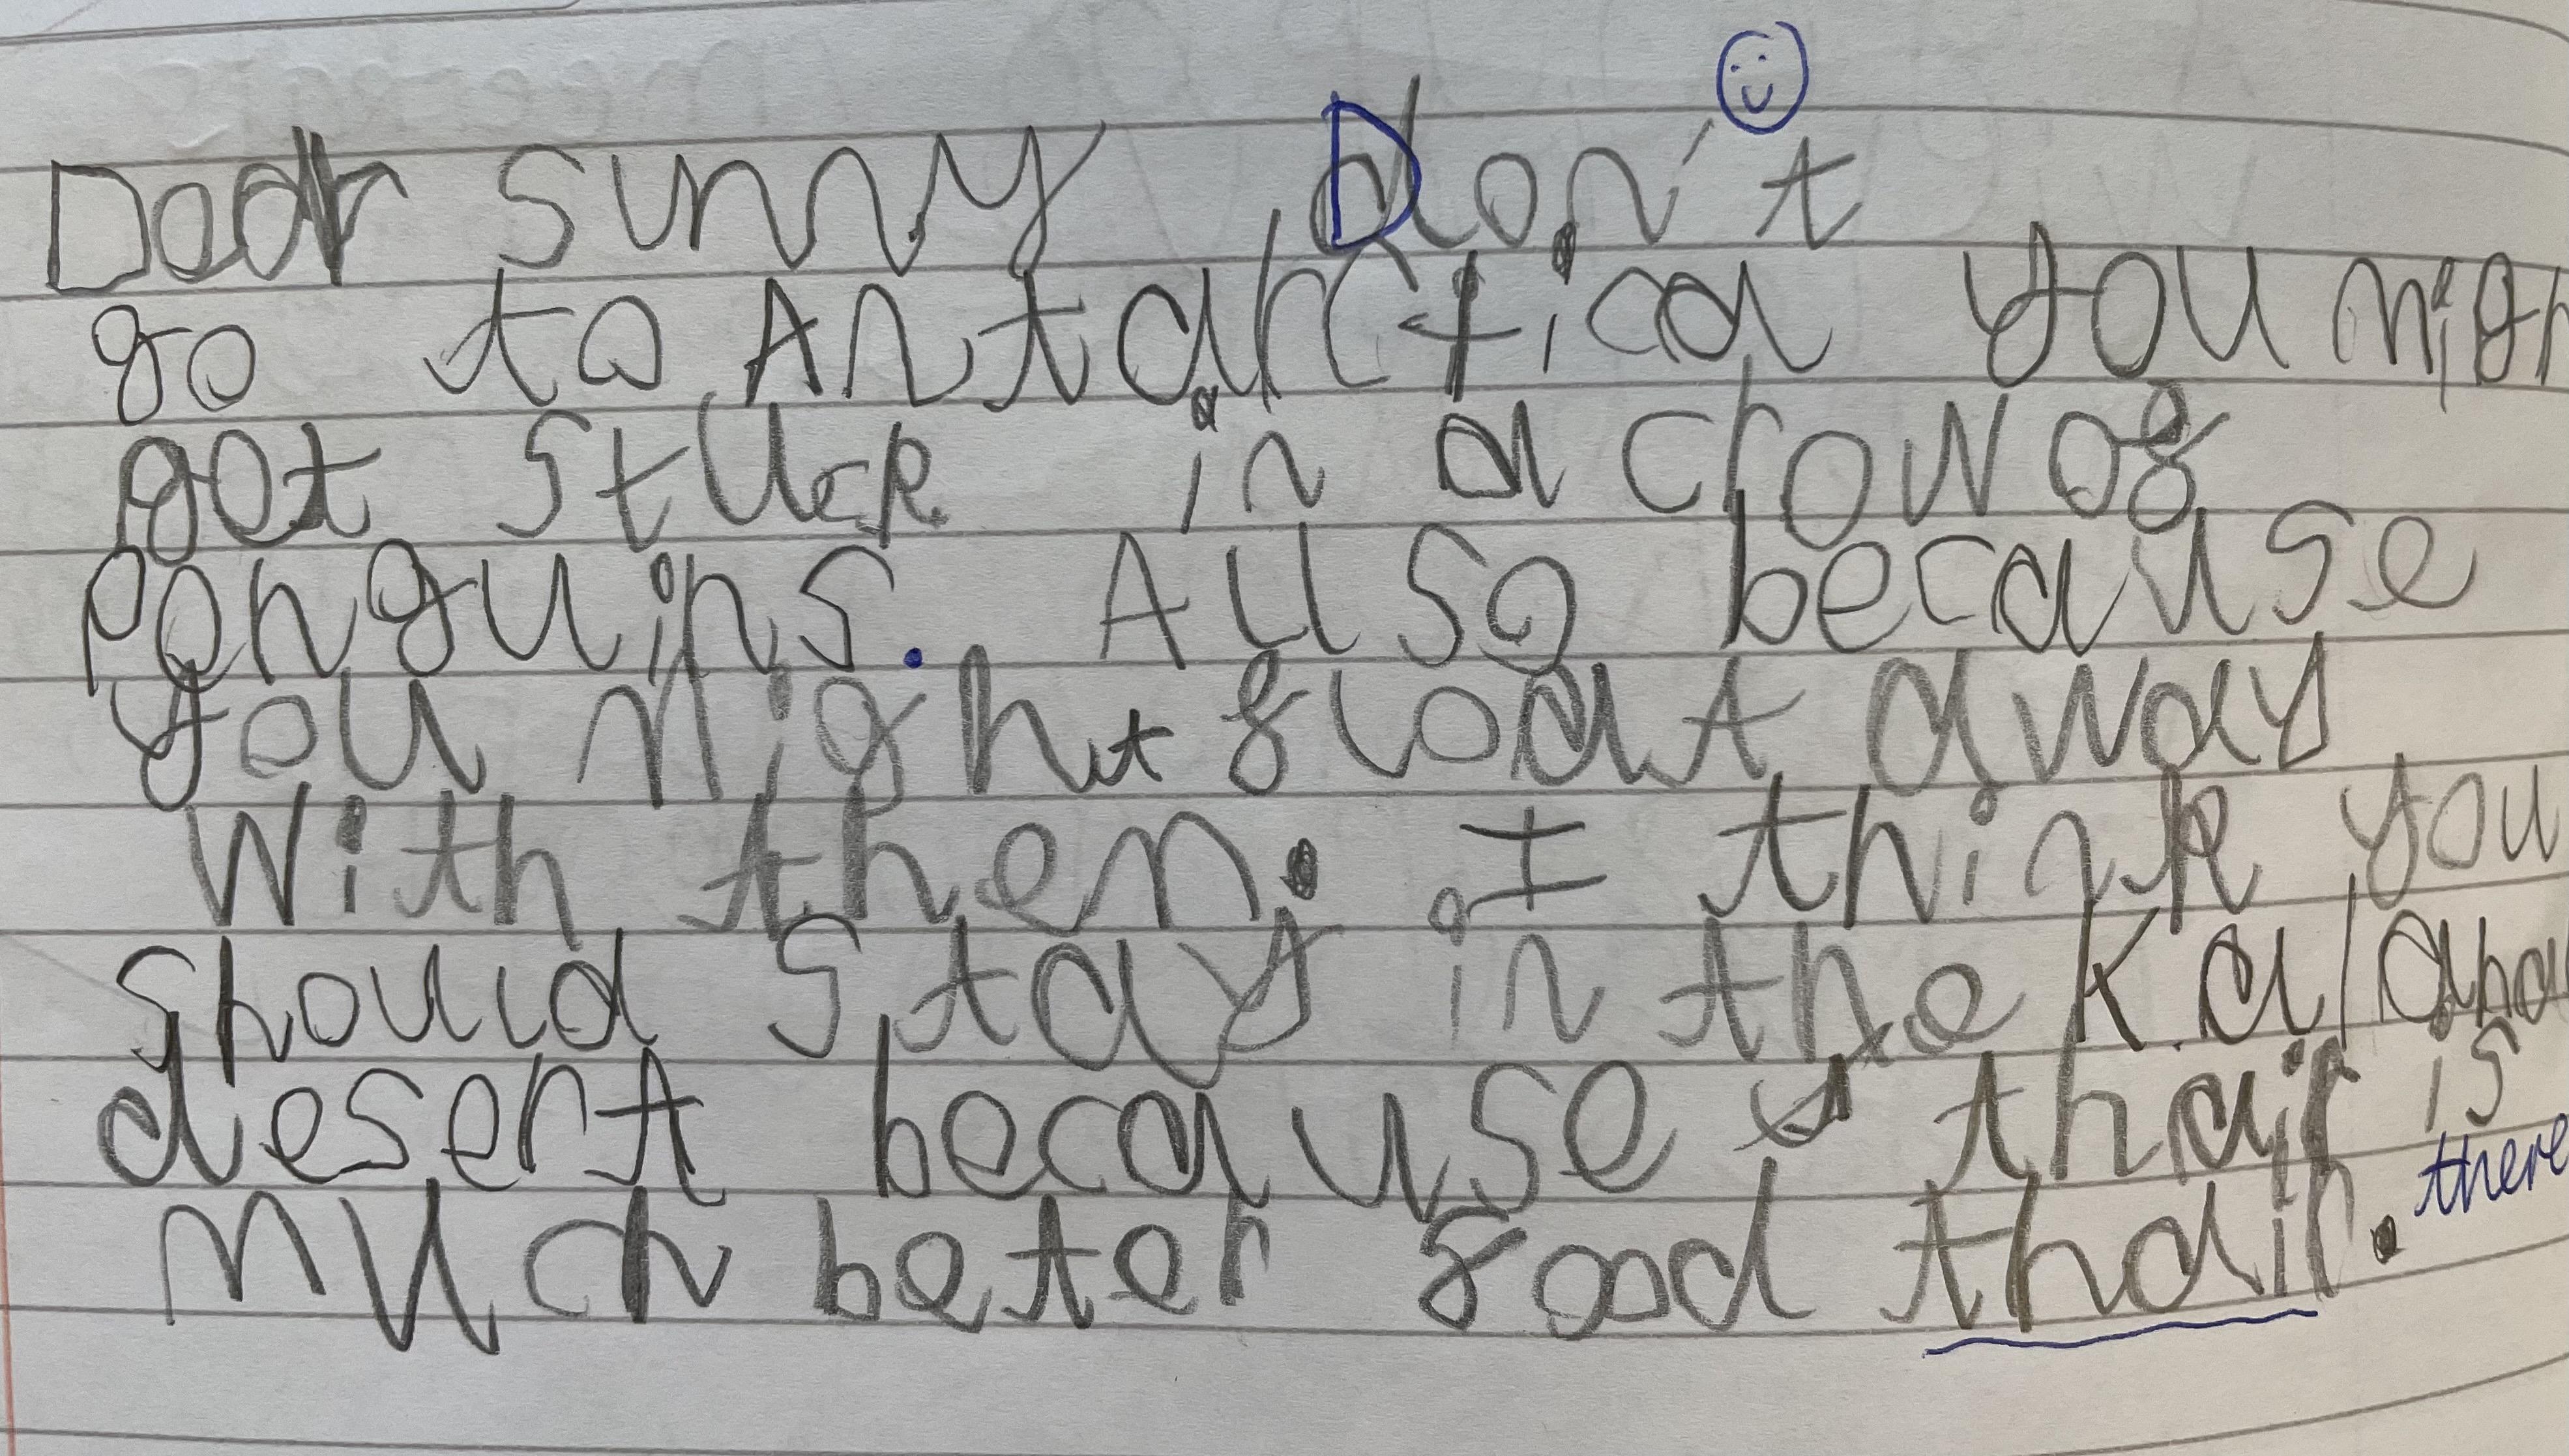 Dear sunny Don't
go to Antarctica you migh
get stuck in a crow of
penguins. Allso because
you might float away
with them. I think you
should stay in the Kalaha
desert because thair is
there
much beter food thair.